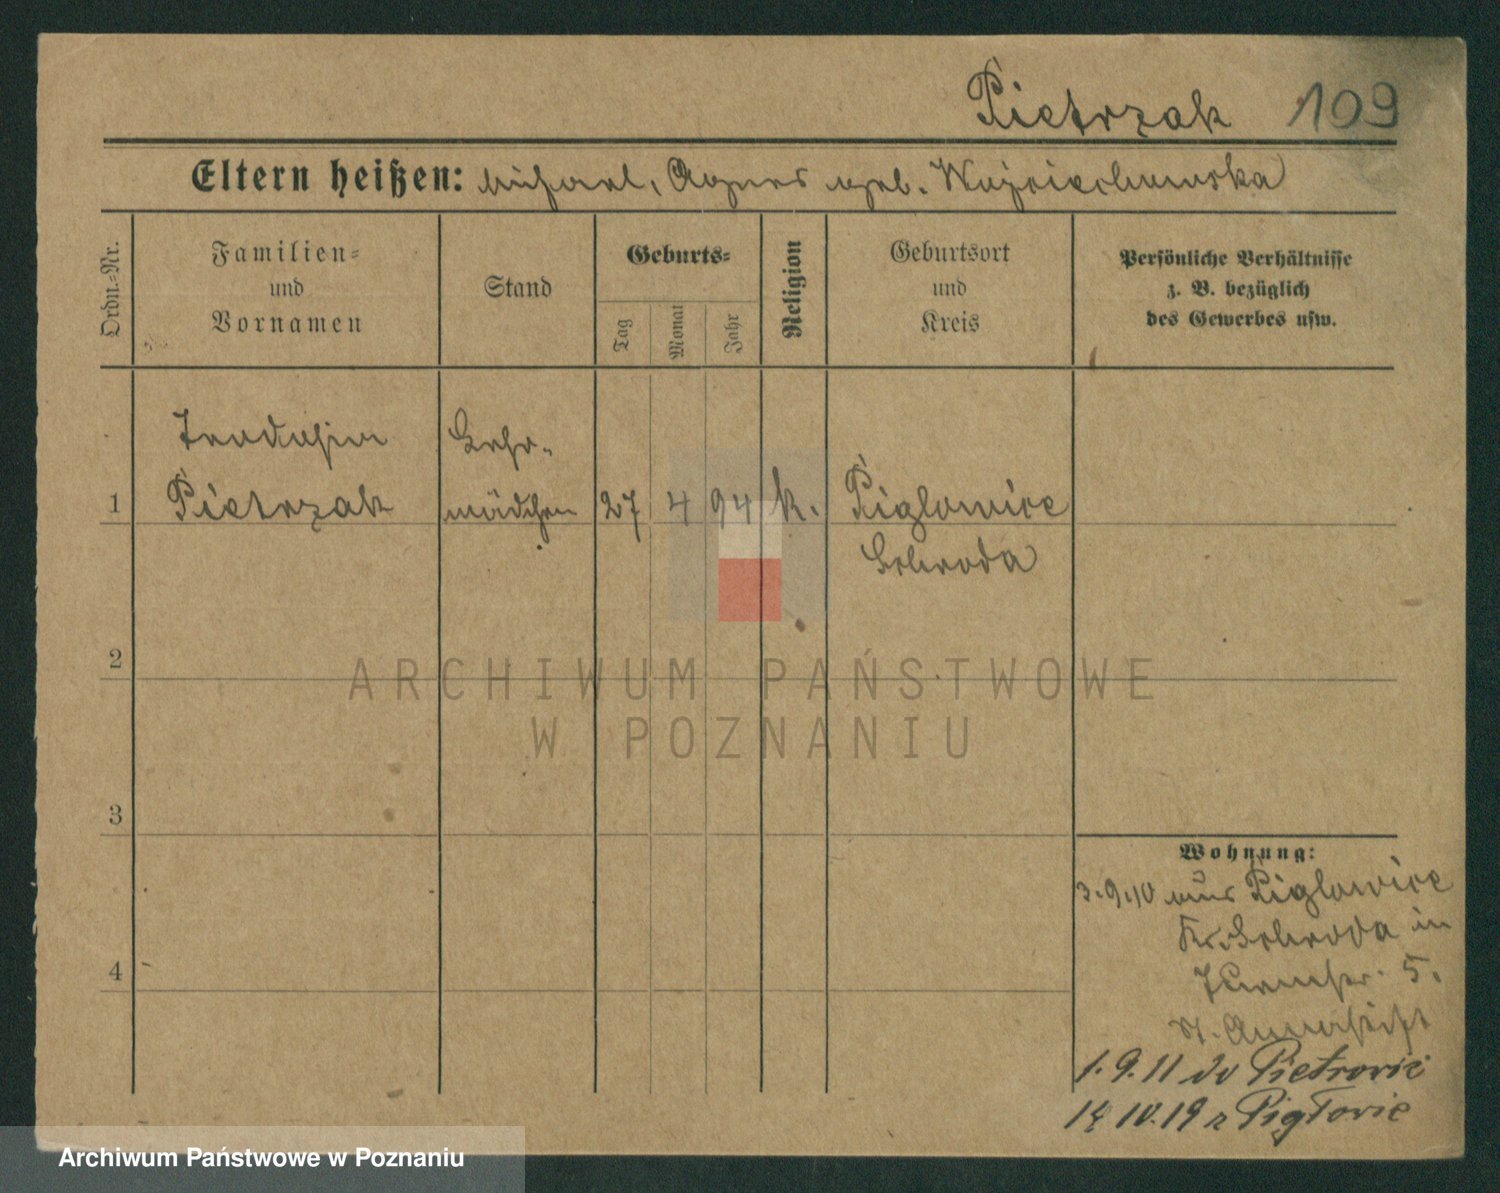 Pietrzak 109
Eltern heißen: Michael, Agnes geb. Wojciechowska
Ordn.=Nr.
Familien=
und
Vornamen
Stand
Geburts=
Tag
Monat
Jahr
Religion
Geburtsort
und
Kreis
Persönliche Verhältnisse
z. B. bezüglich
des Gewerbes usw.
Lehr-
1 Pietrzak mädchen 27 4 94 k. Piglowice
Schroda
2
3
4
Wohnung:
3.9.10 aus Piglowice
Kr. Schroda in
5.
St. Annastift
1.9.11 do Pietrowic
10.19 z Pigłowic
ARCHIWUM PAŃSTWOWE
W POZNANIU
Archiwum Państwowe w Poznaniu